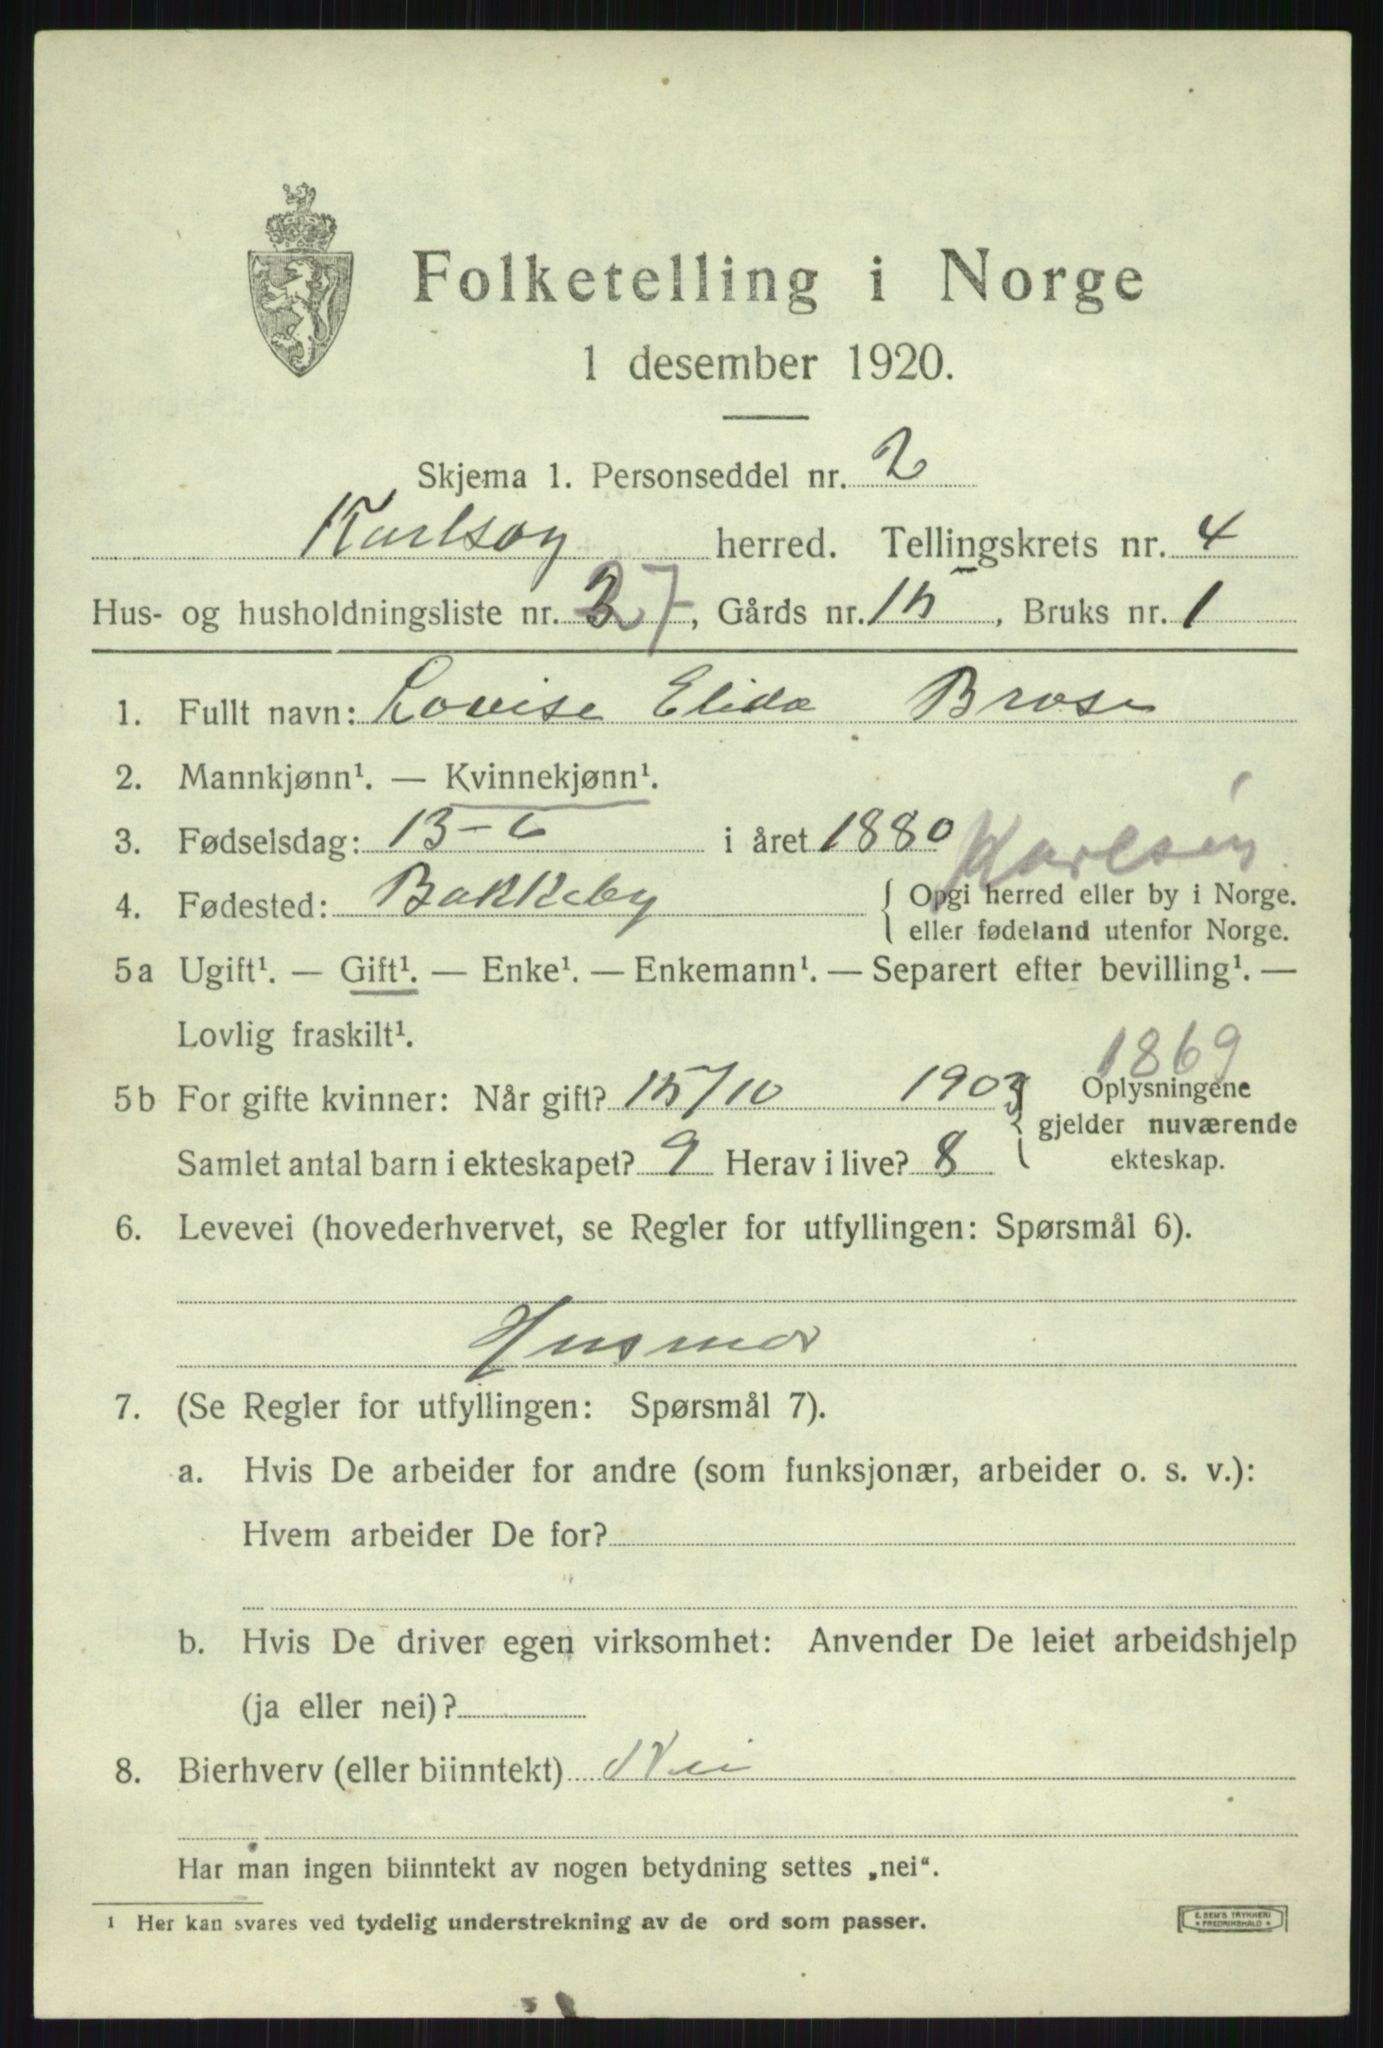 Folketelling i Norge
1 desember 1920.
Skjema 1. Personseddel nr. 2
Karlsøy herred. Tellingskrets nr. 4
Hus- og husholdningsliste nr. 27, Gårds nr. 15, Bruks nr. 1
1. Fullt navn: Lovise Elida
2. Mannkjønn¹. — Kvinnekjønn¹.
3. Fødselsdag: 13-6 i året 1880
Karlsøy
4. Fødested: Bakkeby { Opgi herred eller by i Norge.
eller fødeland utenfor Norge.
5a Ugift¹. — Gift¹. — Enke¹. — Enkemann¹. — Separert efter bevilling¹. —
Lovlig fraskilt¹.
1869
5b For gifte kvinner: Når gift? 15/10 1903 { Oplysningene
gjelder nuværende
Samlet antal barn i ekteskapet? 9 Herav i live? 8 ekteskap.
6. Levevei (hovederhvervet, se Regler for utfyllingen: Spørsmål 6).
Husmor
7. (Se Regler for utfyllingen: Spørsmål 7).
a. Hvis De arbeider for andre (som funksjonær, arbeider o. s. v.):
Hvem arbeider De for?
b. Hvis De driver egen virksomhet: Anvender De leiet arbeidshjelp
(ja eller nei)?
8. Bierhverv (eller biinntekt) Nei
Har man ingen biinntekt av nogen betydning settes „nei“.
¹ Her kan svares ved tydelig understrekning av de ord som passer.
E. SEM'S TRYKKERI
FREDRIKSHALD